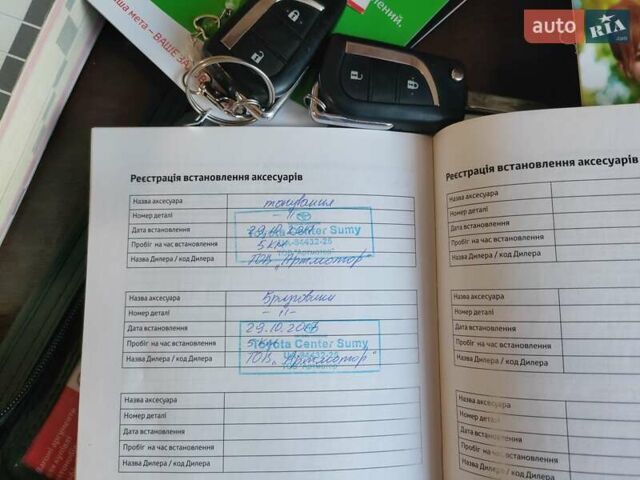 аша мета – ВАШЕ ЗА
лений.
auto RIA
.com
Реєстрація встановлення аксесуарів
Назва аксесуара тонування
Номер деталі - " -
Дата встановлення 29.10.
Пробіг на час встановлення 5 км
Назва Дилера / код Дилера ТОВ „Артмотор"
Toyota Center Sumy
UA-94432-25
ТОВ "Артмотор"
Назва аксесуара Бризговики
Номер деталі - " -
Дата встановлення 29.10.
Пробіг на час встановлення 5 км
Назва Дилера / код Дилера ТОВ „Артмотор"
Toyota Center Sumy
ТОВ "Артмотор"
Назва аксесуара
Номер деталі
Дата встановлення
Пробіг на час встановлення
Назва Дилера / код Дилера
Реєстрація встановлення аксесуарів
Назва аксесуара
Номер деталі
Дата встановлення
Пробіг на час встановлення
Назва Дилера / код Дилера
Назва аксесуара
Номер деталі
Дата встановлення
Пробіг на час встановлення
Назва Дилера / код Дилера
Назва аксесуара
Номер деталі
Дата встановлення
Пробіг на час встановлення